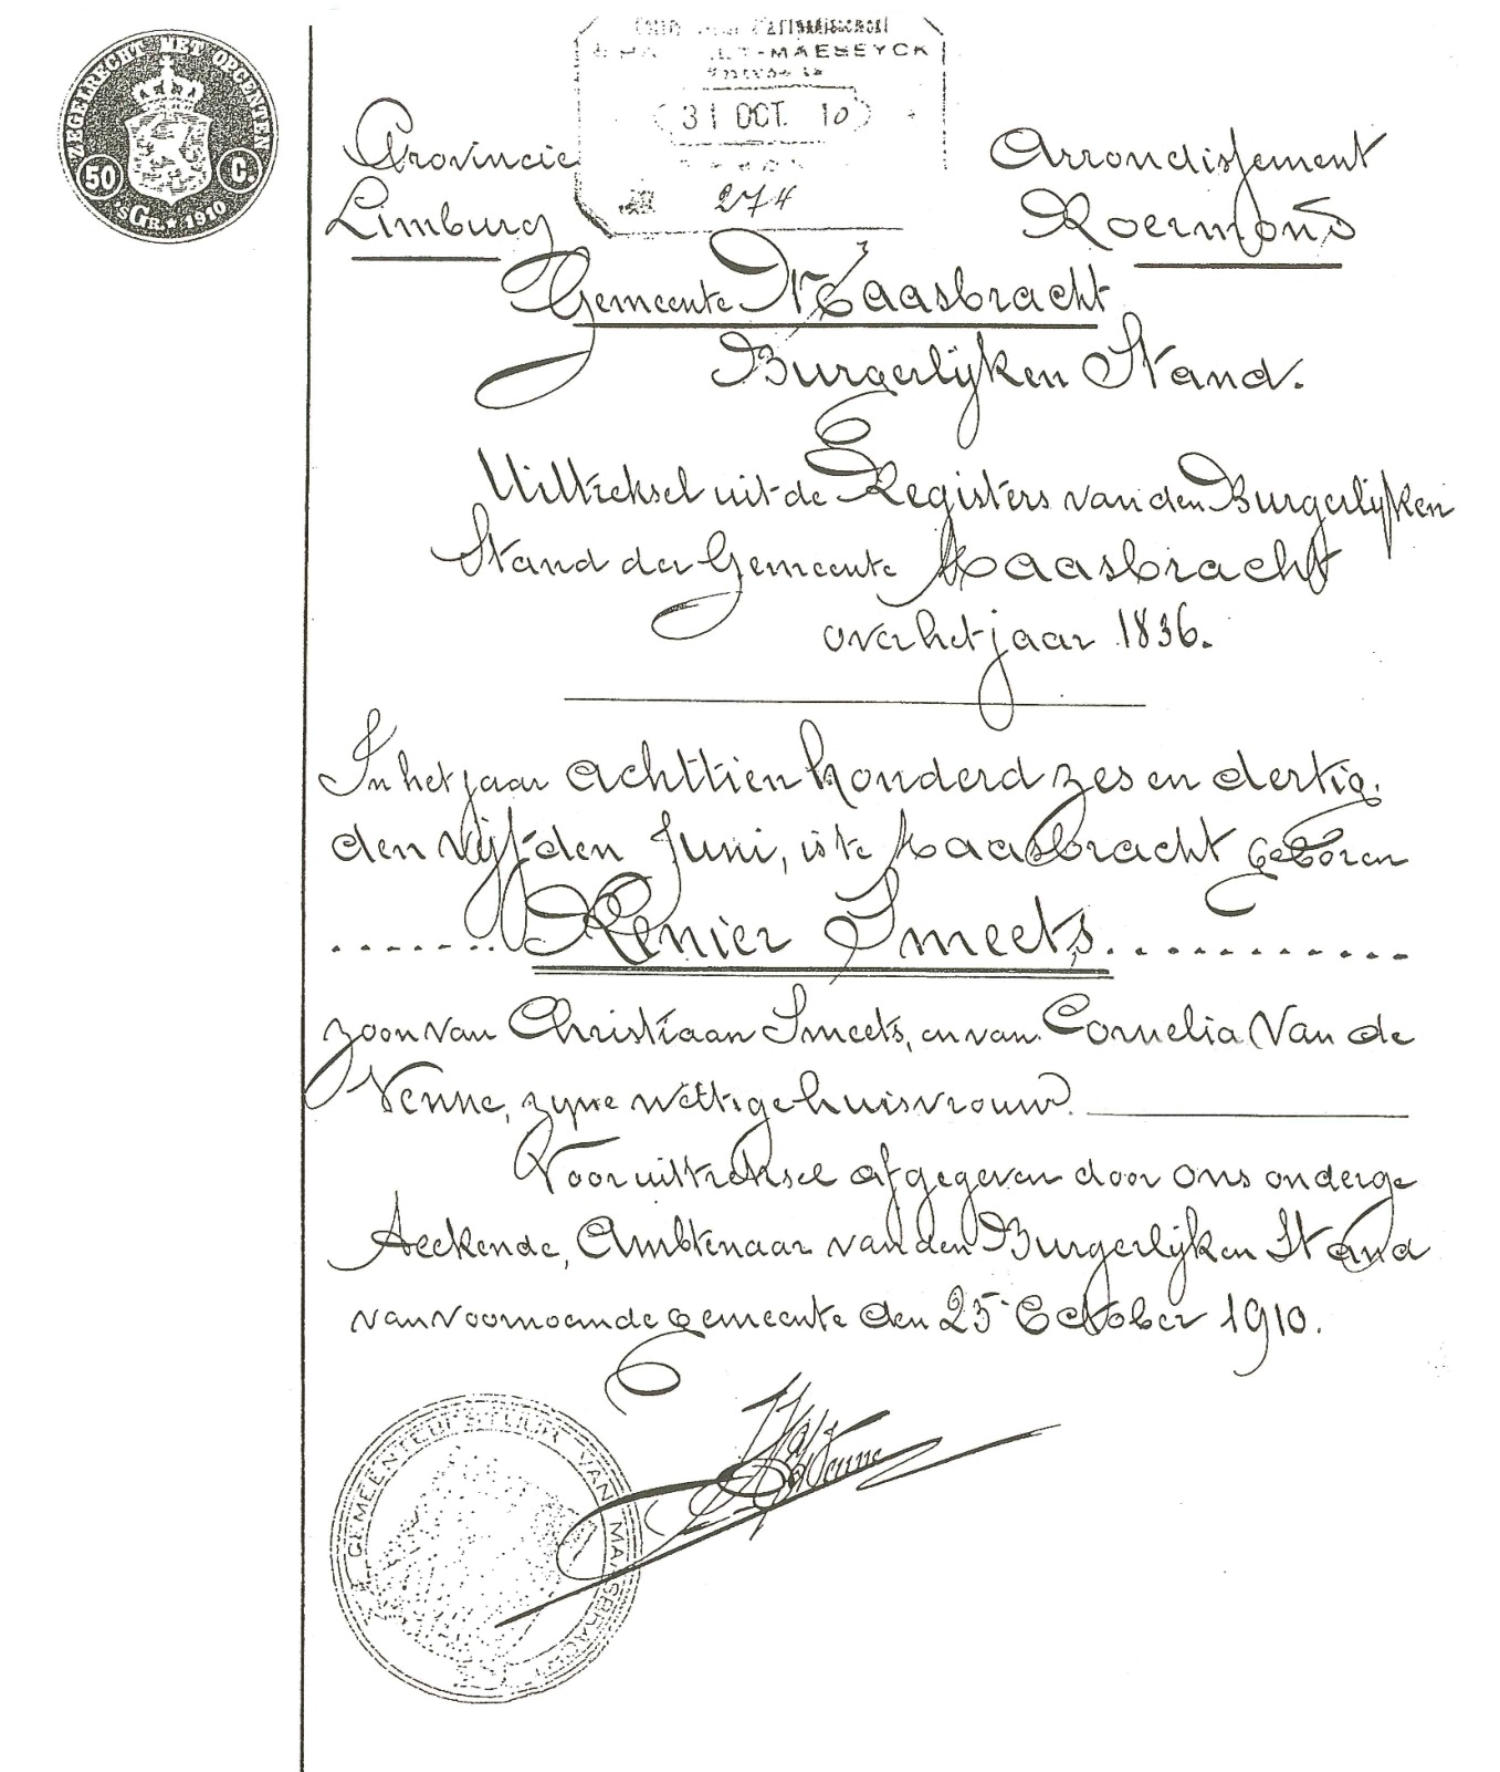 ZEGELRECHT MET OPCENTEN
50 C.
'sGR. * 1910
MAESEYCK
31 OCT. 10
274
Provincie
Limburg
Arrondissement
Roermond
Gemeente Maasbracht
Burgerlijken Stand.
Uittreksel uit de Registers van den Burgerlijken
Stand der Gemeente Maasbracht
over het jaar 1836.
In het jaar achttien honderd zes en dertig.
den vijfden Juni, is te Maasbracht geboren
....... Renier Smeets. ...........
zoon van Christiaan Smeets, en van Cornelia Van de
Venne, zyne wettige huisvrouw.
Voor uittreksel afgegeven door ons onderge
teekende, Ambtenaar van den Burgerlijken Stand
van voornoemde gemeente den 25 October 1910.
Venne
GEMEENTEBESTUUR VAN MAASBRACHT